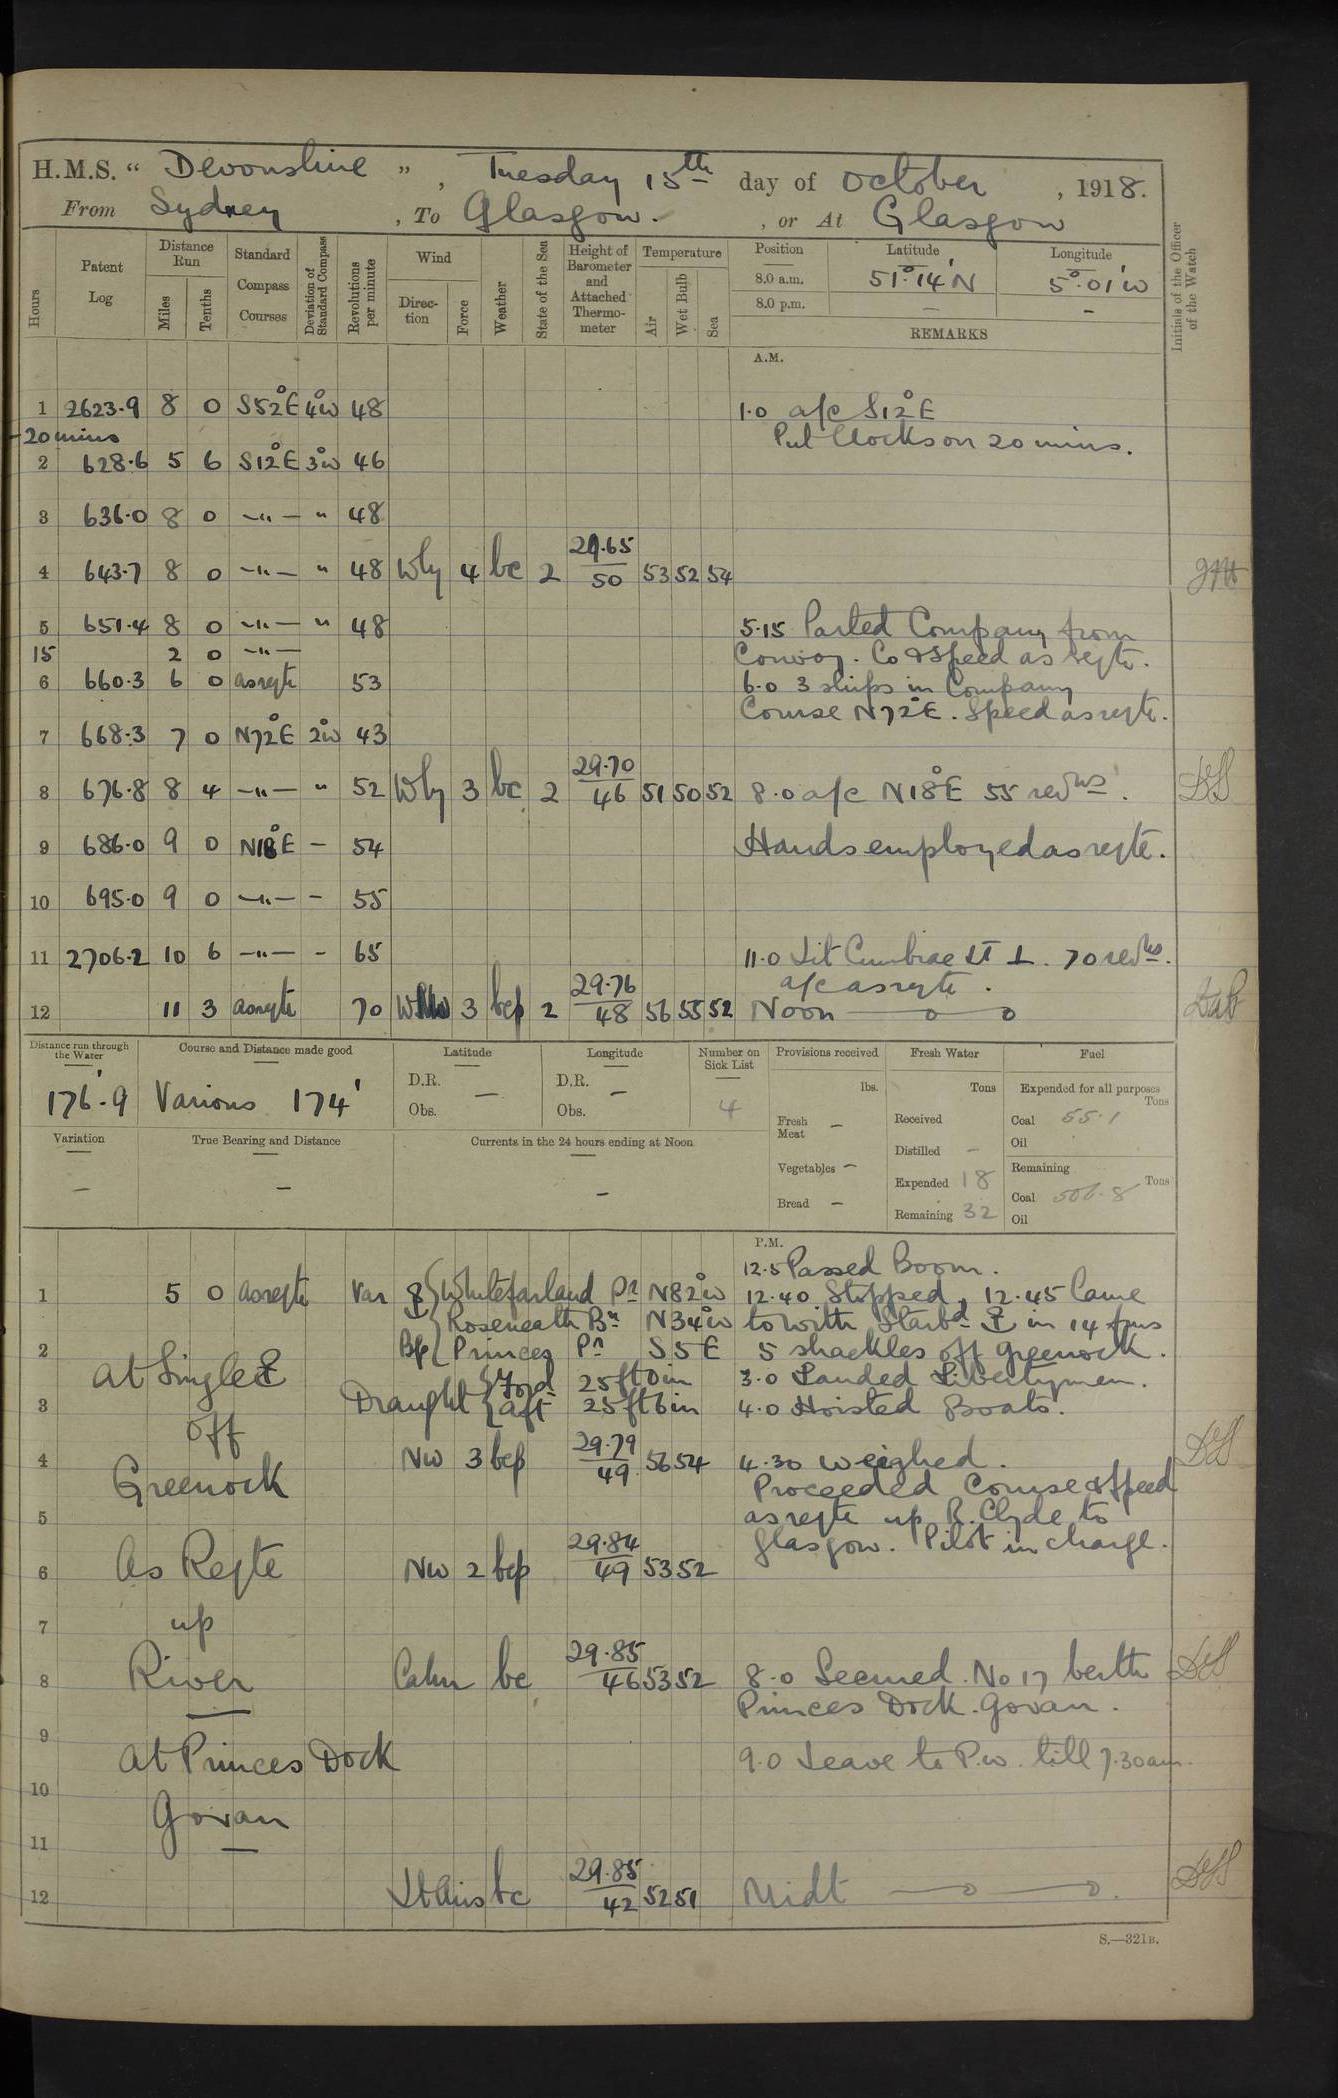 H.M.S. " Devonshire ", Tuesday 15th day of October, 1918.
From Sydney, To Glasgow., or At Glasgow
Hours
Patent Log
Distance Run
Miles
Tenths
Standard Compass Courses
Deviation of Standard Compass
Revolutions per minute
Wind
Direction
Force
Weather
State of the Sea
Height of Barometer and Attached Thermometer
Temperature
Air
Wet Bulb
Sea
Position
Latitude
Longitude
8.0 a.m. 51°.14'N 5°.01'W
8.0 p.m. – –
REMARKS
Initials of the Officer of the Watch
A.M.
1 2623.9 8 0 S52°E 4°W 48 1.0 a/c S12°E
-20 mins Put Clocks on 20 mins.
2 628.6 5 6 S12°E 3°W 46
3 636.0 8 0 —"— " 48
4 643.7 8 0 —"— " 48 Wly 4 bc 2 29.65/50 53 52 54
5 651.4 8 0 —"— " 48 5.15 Parted Company from
15 2 0 —"— Convoy. Co & Speed as reqte.
6 660.3 6 0 as reqte 53 6.0 3 ships in Company
Course N72°E. Speed as reqte.
7 668.3 7 0 N72°E 2°W 43
8 676.8 8 4 —"— " 52 Wly 3 bc 2 29.70/46 51 50 52 8.0 a/c N18°E 55 revns.
9 686.0 9 0 N18°E – 54 Hands employed as reqte.
10 695.0 9 0 —"— – 55
11 2706.2 10 6 —"— – 65 11.0 Lit Cumbrae Lt ⊥. 70 revns.
a/c as reqte.
12 11 3 as reqte 70 3 bcp 2 29.76/48 56 55 52 Noon
Distance run through the Water
Course and Distance made good
Latitude
Longitude
Number on Sick List
Provisions received
Fresh Water
Fuel
176'.9 Various 174'
D.R. Obs. –
D.R. Obs. –
4
lbs.
Fresh Meat –
Vegetables –
Bread –
Tons
Received
Distilled –
Expended 18
Remaining 32
Expended for all purposes
Tons
Coal 55.1
Oil
Remaining
Tons
Coal 506.8
Oil
Variation
–
True Bearing and Distance
–
Currents in the 24 hours ending at Noon
–
P.M.
12.5 Passed Boom.
1 5 0 as reqte Var Whitefarland Pt N82°W 12.40 Stopped, 12.45 Came
Roseneath Bn N34°W to with Starbd ⚓ in 14 fms
2 Princes Pr S5E 5 shackles off Greenock.
At Single ⚓
Draught { Ford 25ft 0in 3.0 Landed Libertymen.
3 { aft 25ft 6in 4.0 Hoisted Boats.
off
4 NW 3 bcp 29.79/49 56 54 4.30 Weighed.
Greenock Proceeded Course & Speed
5 as reqte up R. Clyde to
Glasgow. Pilot in charge.
6 As Reqte NW 2 bcp 29.84/49 53 52
7 up
8 River Calm bc 29.85/46 53 52 8.0 Secured. No 17 berth
Princes Dock. Govan.
9 At Princes Dock 9.0 Leave to P.W. till 7.30am.
10
Govan
11
12 Lt Airs bc 29.85/42 52 51 Midt
S.—321B.